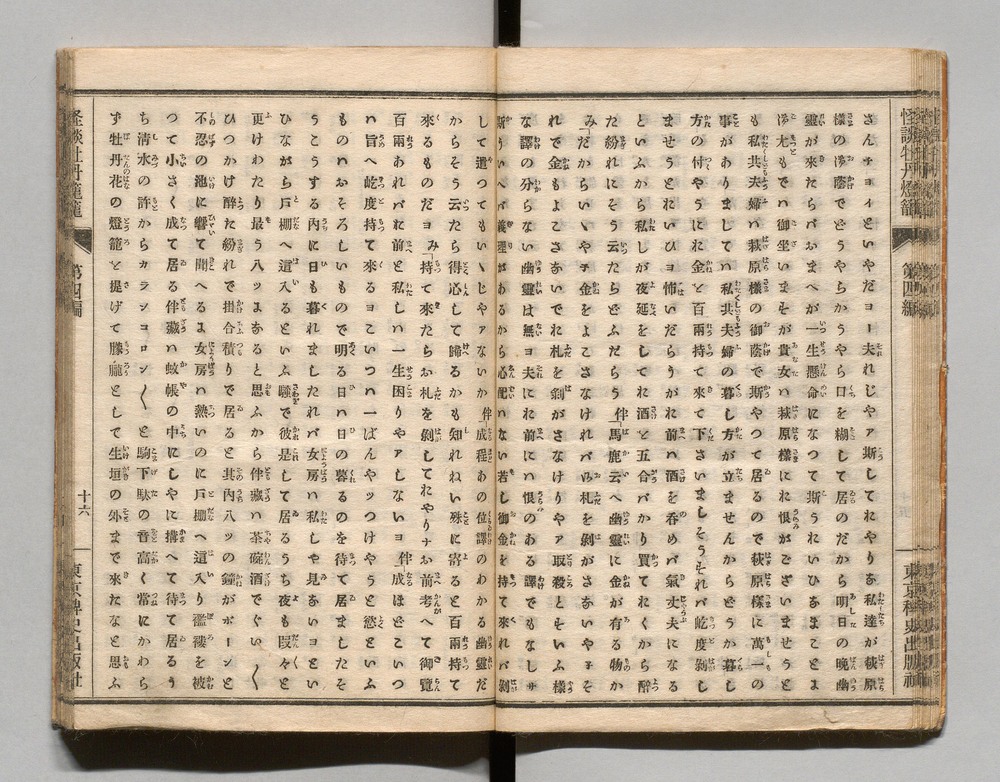 怪談牡丹燈籠
第四編
東京稗史出版社
さんチョイといやだヨー夫れじやア斯してれやりな私達が萩原
様の御蔭でどうやらかうやら口を糊して居のだから明日の晩幽
靈が來たらバおまへが一生懸命になつて斯うれいひなまこよま
ア尤もでハ御坐いまをが貴女ハ萩原様にれ恨がございませうと
も私共夫婦ハ萩原様の御蔭で斯やつて居るので萩原様に萬一の
事がありましてハ私共夫婦の暮し方が立ませんからどうか暮し
方の付やうにれ金を百兩持て來て下さいましそうそれバ屹度剝し
ませうとれいひヨ怖いだらうがれ前ハ酒を呑めバ氣丈夫になる
といふから私しが夜延をしてれ酒を五合バかり買てれくから醉
た紛れにそう云たらどふだらう伴「馬鹿云へ幽靈に金が有る物か
み「だからいゝやチ金をよこさなけれバお札を剝がさないやチそ
れで金もよこさないでれ札を剝がさなけりやア取殺とせいふ樣
な譯の分らない幽靈は無ヨ夫にれ前にハ恨のある譯でもなしサ
斯ういへバ義理があるから心配ハない若し御金を持て來れバ剝
して遣つてもいゝじやアないか伴「成程あの位譯のわかる幽靈だ
からそう云たら得心して歸るかも知れねい殊に寄ると百兩持て
來るものだヨみ「持て來たらお札を剝してれやりナお前考へて御覽
百兩あれバれ前と私しハ一生困りやアしないヨ伴「成ほどこいつ
ハ旨へ屹度持て來るヨこいつハ一ばんやッつけやうと慾といふ
ものハおそろしいもので明る日ハ日の暮るのを待て居ましたそ
うこうする内に日も暮れましたれバ女房ハ私しや見ないヨとい
ひながら戸棚へ這入るといふ騷で彼是して居るうち夜も段々と
更けわたり最う八ッまなると思ふから伴藏ハ茶碗酒でぐい〱
ひつかけ醉た紛れで掛合積りで居ると其内八ッの鐘がボーンと
不忍の池に響て聞へるよ女房ハ熱いのに戸棚へ這入り襤褸を被
つて小さく成て居る伴藏ハ蚊帳の中にしやに搆へて待て居るう
ち清水の許からカラッコロン〱と駒下駄の音高く常にかわら
ず牡丹花の燈籠を提げて朦朧として生垣の外まで來たなと思ふ
怪談牡丹燈籠
第四編
十六
東京稗史出版社